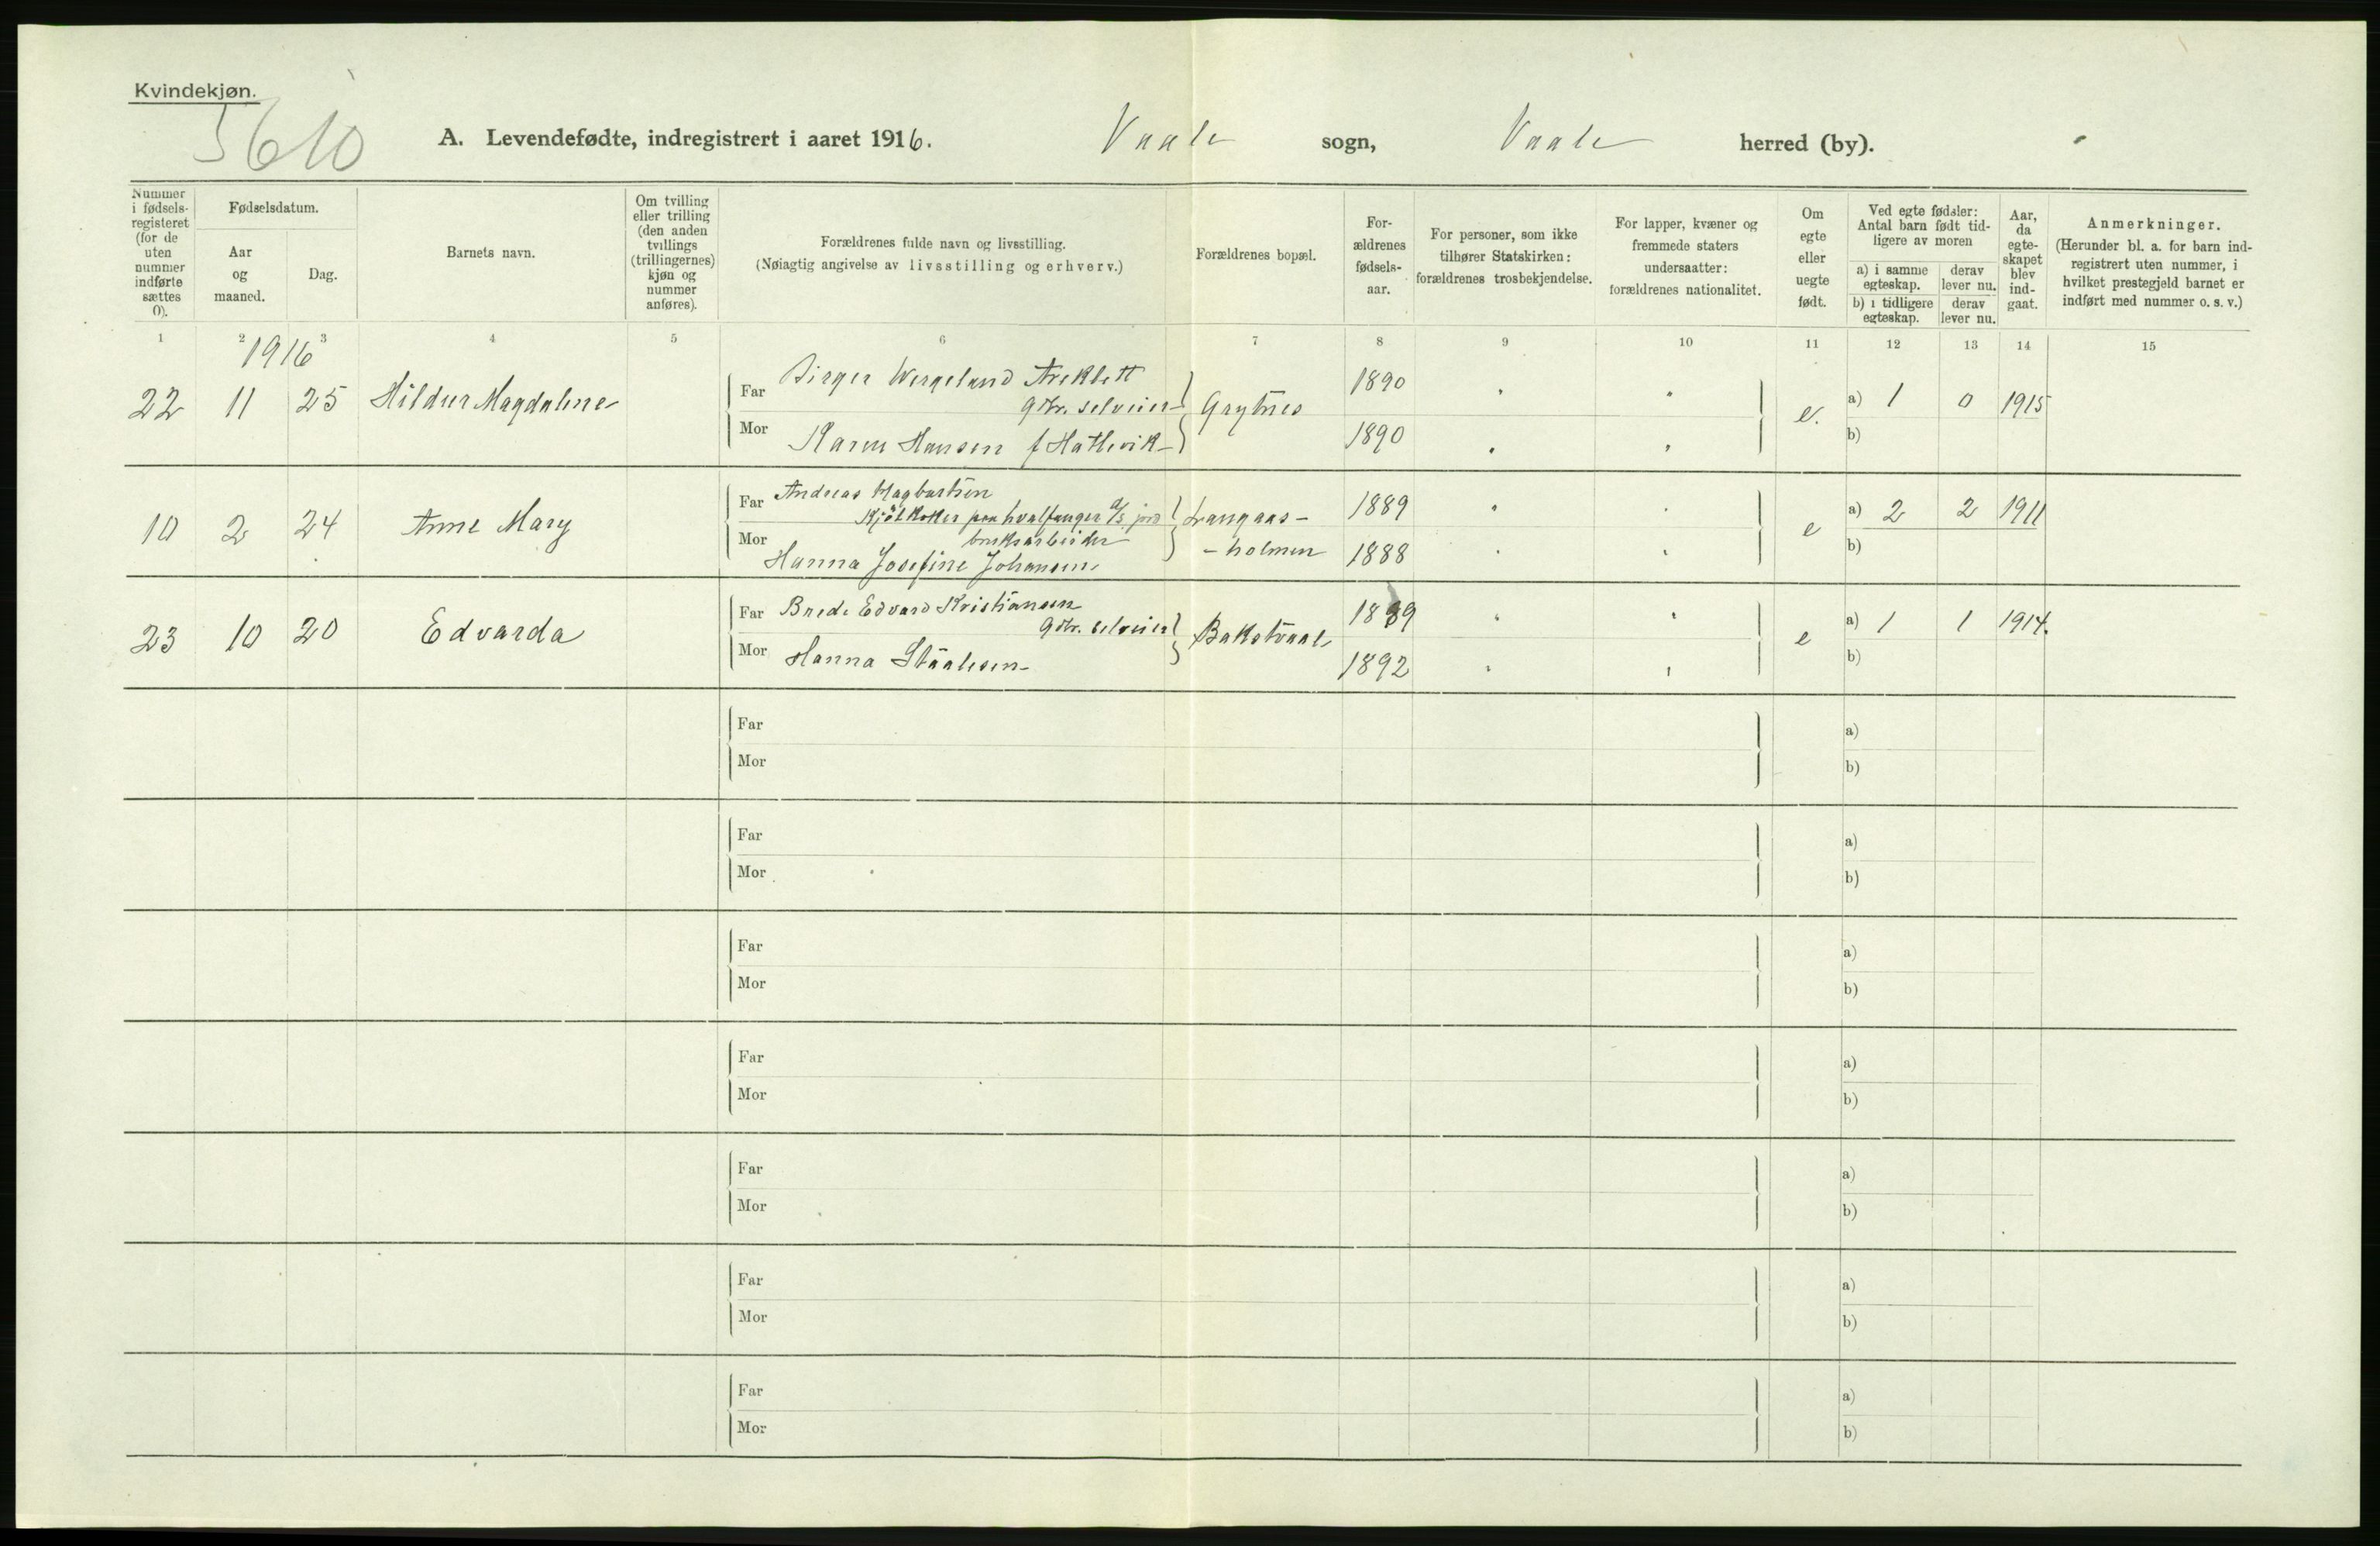 Kvindekjøn.
5610
A. Levendefødte, indregistrert i aaret 1916. Vaale sogn, Vaale herred (by).
Nummer i fødsels-registeret (for de uten nummer indførte sættes 0).
Fødselsdatum.
Aar og maaned.
Dag.
Barnets navn.
Om tvilling eller trilling (den anden tvillings (trillingernes) kjøn og nummer anføres).
Forældrenes fulde navn og livsstilling.
(Nøiagtig angivelse av livsstilling og erhverv.)
Forældrenes bopæl.
For-ældrenes fødsels-aar.
For personer, som ikke tilhører Statskirken: forældrenes trosbekjendelse.
For lapper, kvæner og fremmede staters undersaatter: forældrenes nationalitet.
Om egte eller uegte født.
Ved egte fødsler: Antal barn født tid-ligere av moren
a) i samme egteskap.
derav lever nu.
b) i tidligere egteskap.
derav lever nu.
Aar, da egte-skapet blev ind-gaat.
Anmerkninger.
(Herunder bl. a. for barn ind-registrert uten nummer, i hvilket prestegjeld barnet er indført med nummer o. s. v.)
1 2 3 4 5 6 7 8 9 10 11 12 13 14 15
1916
22 11 25 Hildur Magdalene
Far Birger Wergeland
gdbr. selveier
Mor Karen Hansen f Hatlevik
1890 " "
1890 " "
e. a) 1 0 1915
b)
10 2 24 Anne Mary
Far Andreas Hagbartsen
Kjøtkoker paa hvalfanger A/S jord
bruksarbeider
Mor Hanna Josefine Johansen
Langaas-
-holmen
1889 " "
1888 " "
e a) 2 2 1911
b)
23 10 20 Edvarda
Far Brede Edvard Kristiansen
gdbr. selveier
Mor Hanna Staalesen
1889 " "
1892 " "
e a) 1 1 1914.
b)
Far a)
Mor b)
Far a)
Mor b)
Far a)
Mor b)
Far a)
Mor b)
Far a)
Mor b)
Far a)
Mor b)
Far a)
Mor b)